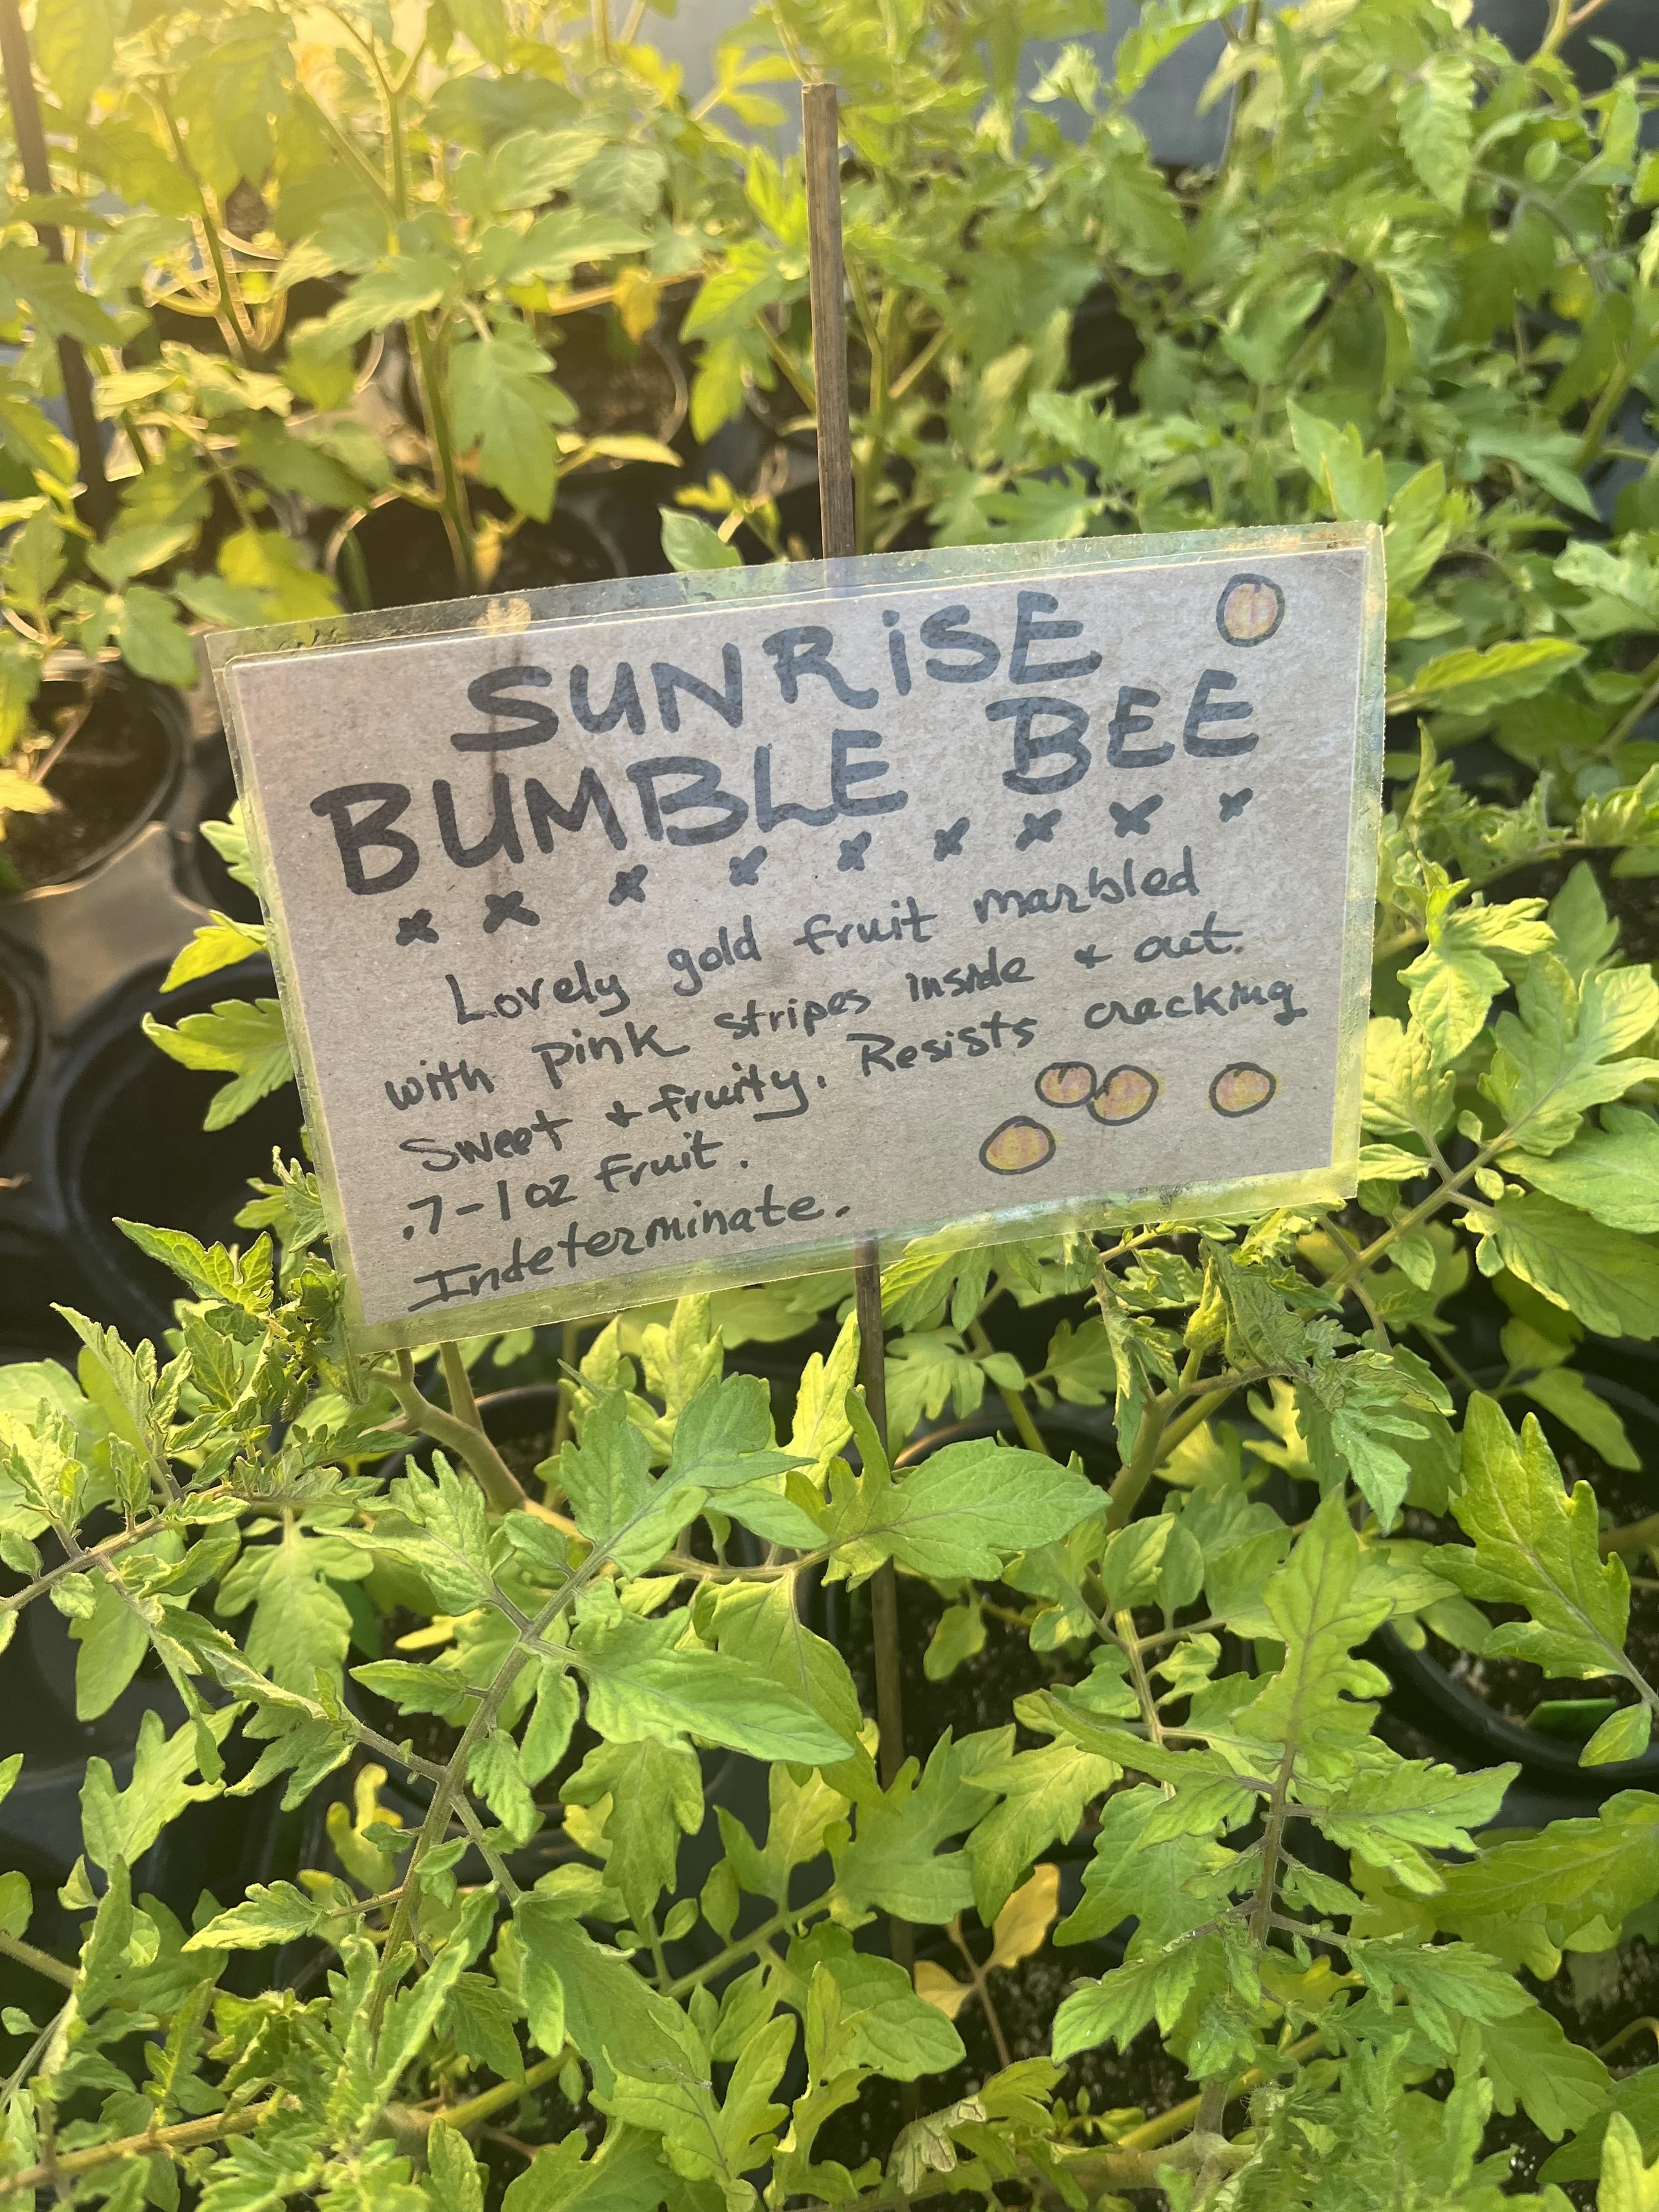 SUNRiSE
BUMBLE BEE
Lovely gold fruit marbled
with pink stripes inside + out.
Sweet + fruity. Resists cracking
.7-1 oz fruit.
Indeterminate.